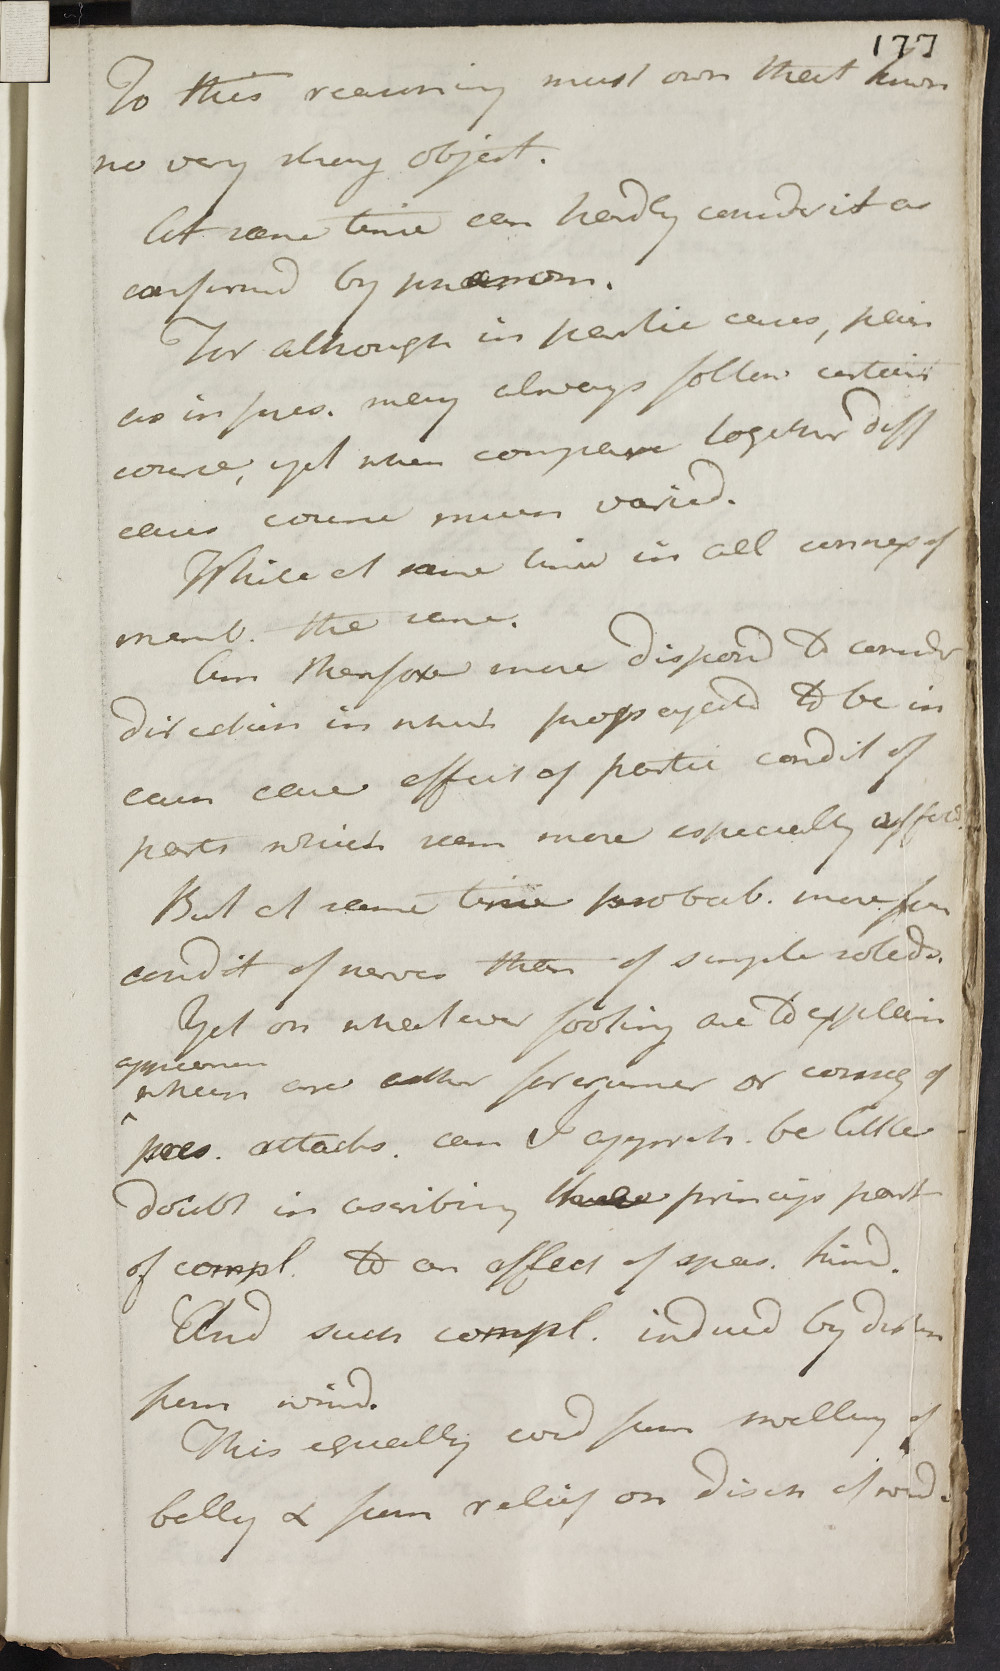 177
To this reasoning must own that know
no very strong object.
At same time can hardly consider it as
confirmd by phaenom.
For although in partic cases, pain
as in pres. may always follow certain
course, yet when compare together diff
cases course much varied.
While at same time in all connex of
memb. the same.
Am therefore more disposd to consider
direction in which propagated to be in
each case effect of partic condit of
parts which seem more especially affectd.
But at same time probab. more from
condit of nerves than of simple solids.
Yet on whatever footing are to explain
appearances
which are either forerunner or conseq of
pres. attacks. can I appreh. be little
doubt in ascribing princip part
of compl. to an affect of spas. kind.
And such compl. inducd by disten
from wind.
This equally concd from swelling of
belly & from relief on disch of wind.